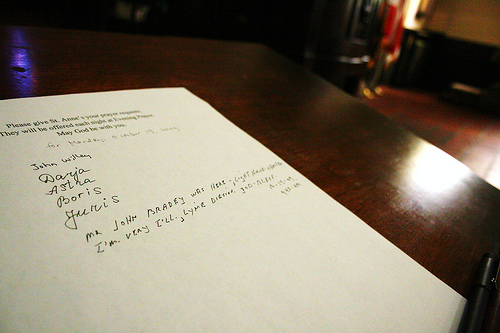 Please give St. Anne's your prayer requests.
They will be offered each night at Evening Prayer.
May God be with you.
for Monday, October 19, 2009
John Willey
Darja
Astra
Boris
Juris
MR JOHN BRADEY WAS HERE -, LIGHT
I'M VERY ILL., LYME DISEASE GOD-BLESS.